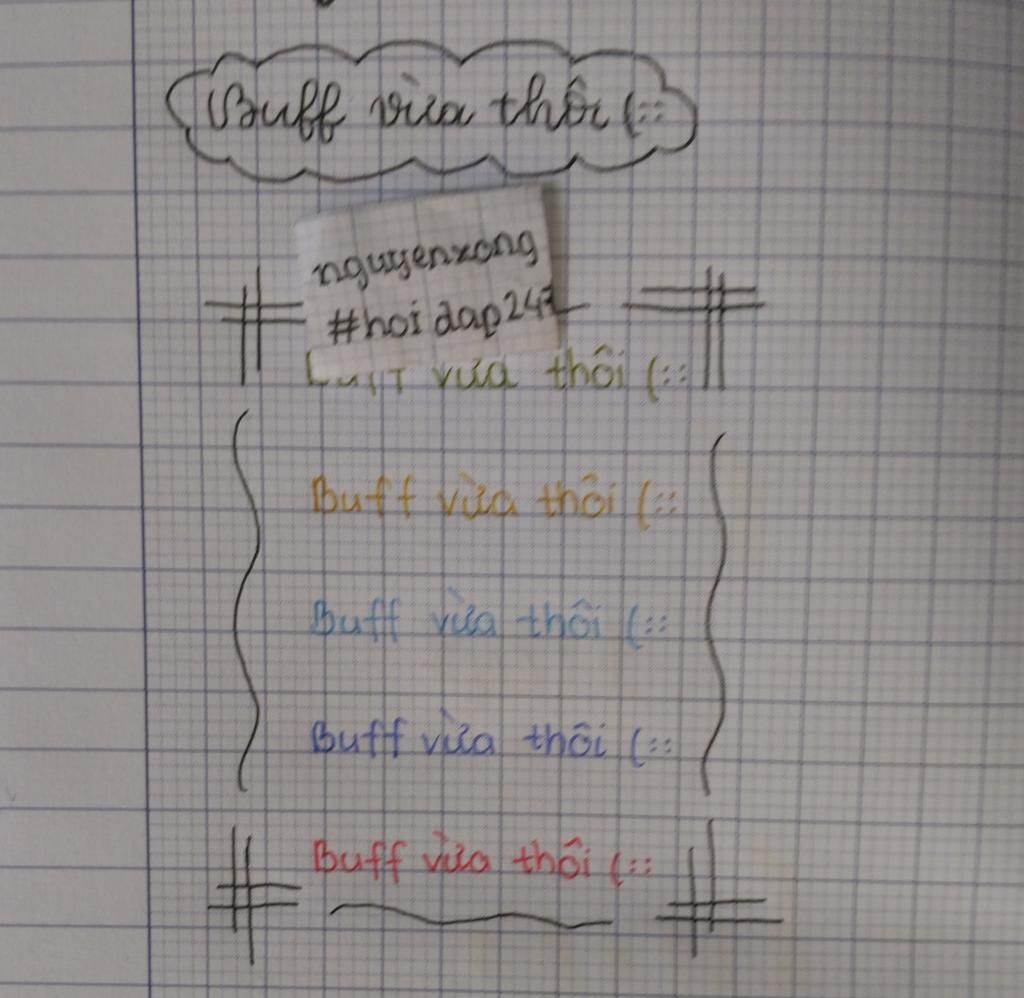 Buff vừa thôi (::
nguyenxong
#hoidap247
Buff vừa thôi (::
Buff vừa thôi (::
Buff vừa thôi (::
Buff vừa thôi (::
Buff vừa thôi (::